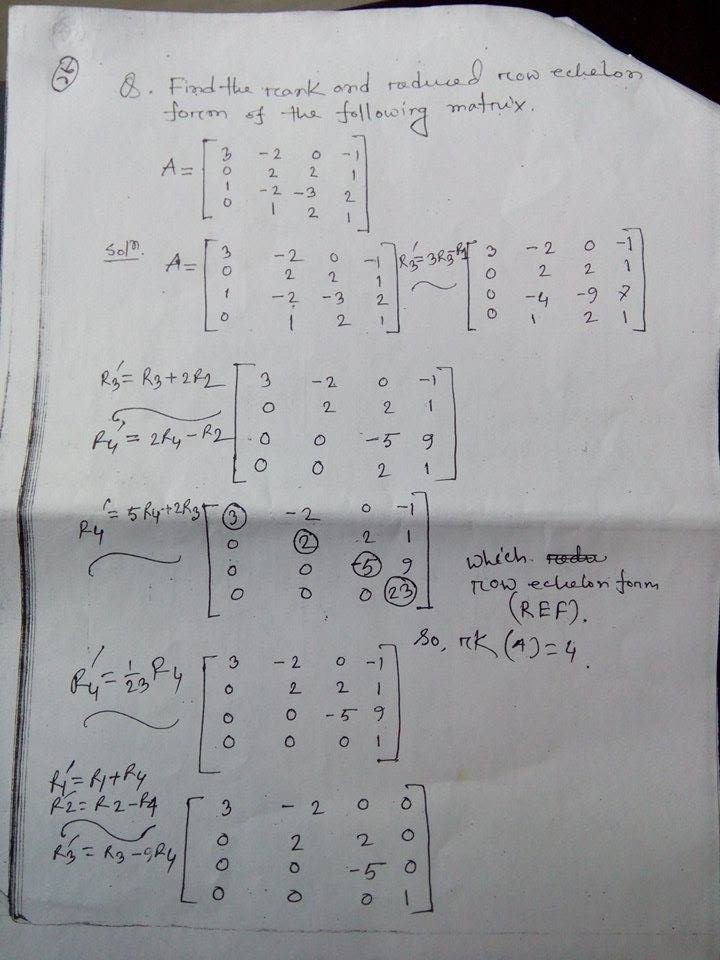 Q. Find the rank and reduced row echelon
form of the following matrix.
A = [ 3 -2 0 -1
0 2 2 1
1 -2 -3 2
0 1 2 1 ]
Soln. A = [ 3 -2 0 -1
0 2 2 1
1 -2 -3 2
0 1 2 1 ] R3' = 3R3-R1 [ 3 -2 0 -1
0 2 2 1
0 -4 -9 7
0 1 2 1 ]
R3' = R3+2R2
R4' = 2R4-R2
[ 3 -2 0 -1
0 2 2 1
0 0 -5 9
0 0 2 1 ]
R4' = 5R4+2R3 [ 3 -2 0 -1
0 2 2 1
0 0 -5 9
0 0 0 23 ]
which
row echelon form
(REF).
So, rk (A) = 4.
R4' = 1/23 R4 [ 3 -2 0 -1
0 2 2 1
0 0 -5 9
0 0 0 1 ]
R1' = R1+R4
R2' = R2-R4
R3' = R3-9R4
[ 3 -2 0 0
0 2 2 0
0 0 -5 0
0 0 0 1 ]